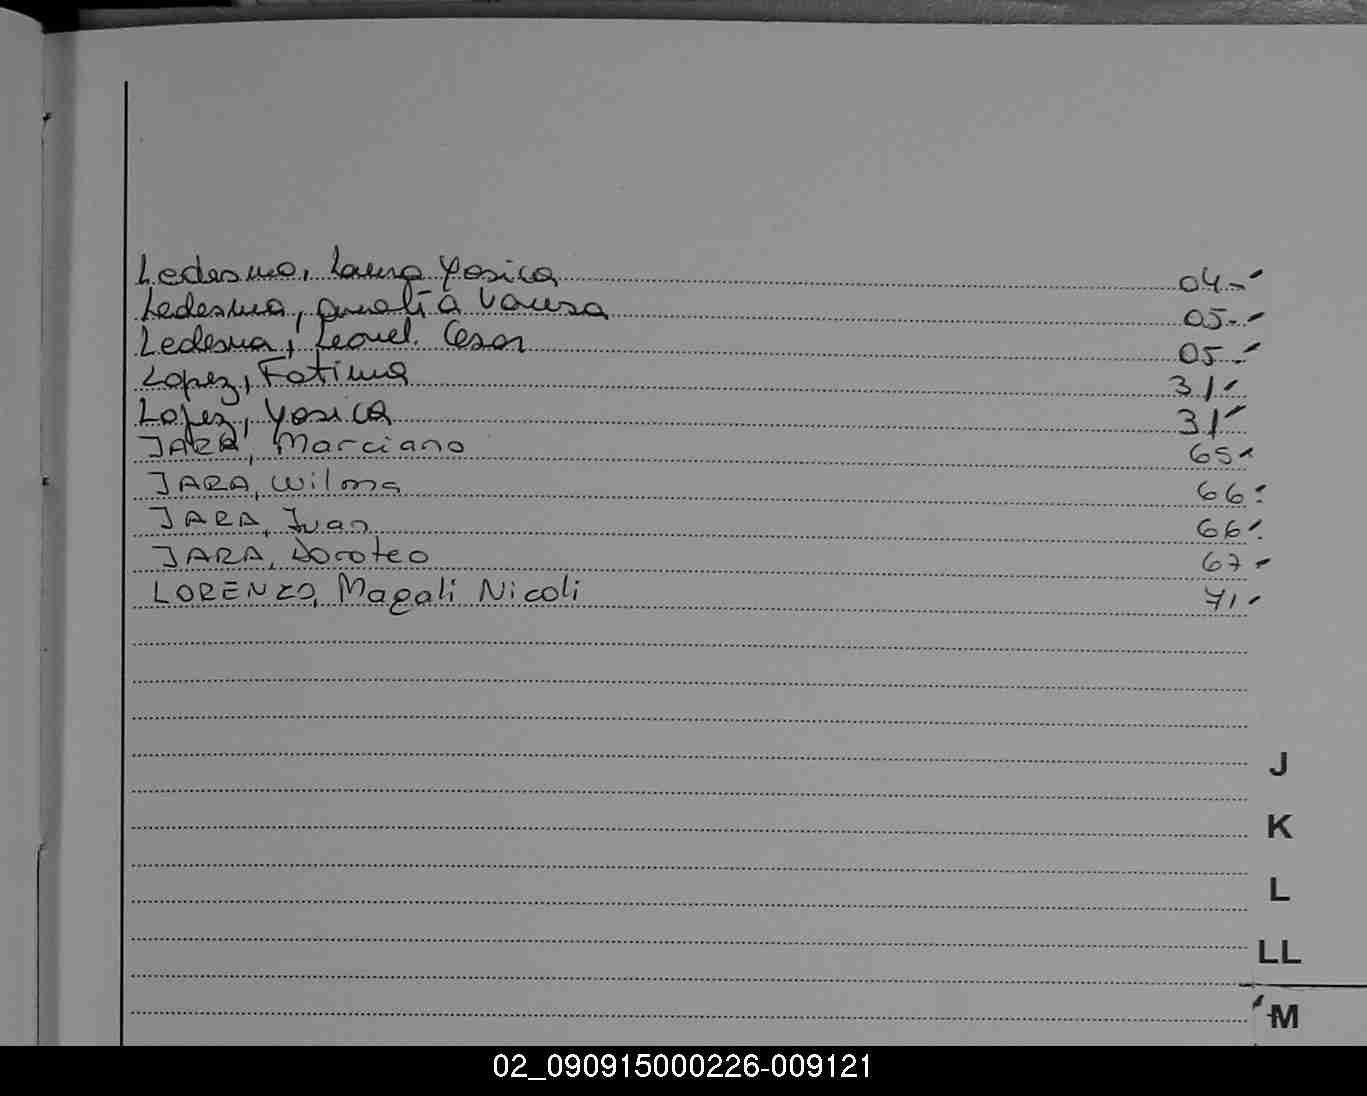 Ledesma, Laura Yesica 04.-
Ledesma, Analía Vanesa 05.-
Ledesma, Leonel Cesar 05.-
Lopez, Fatima 31-
Lopez, Yesica 31-
JARA, Marciano 65-
JARA, Wilma 66-
JARA, Juan 66-
JARA, Doroteo 67-
LORENZO, Magali Nicoli 71-
J
K
L
LL
M
02_090915000226-009121